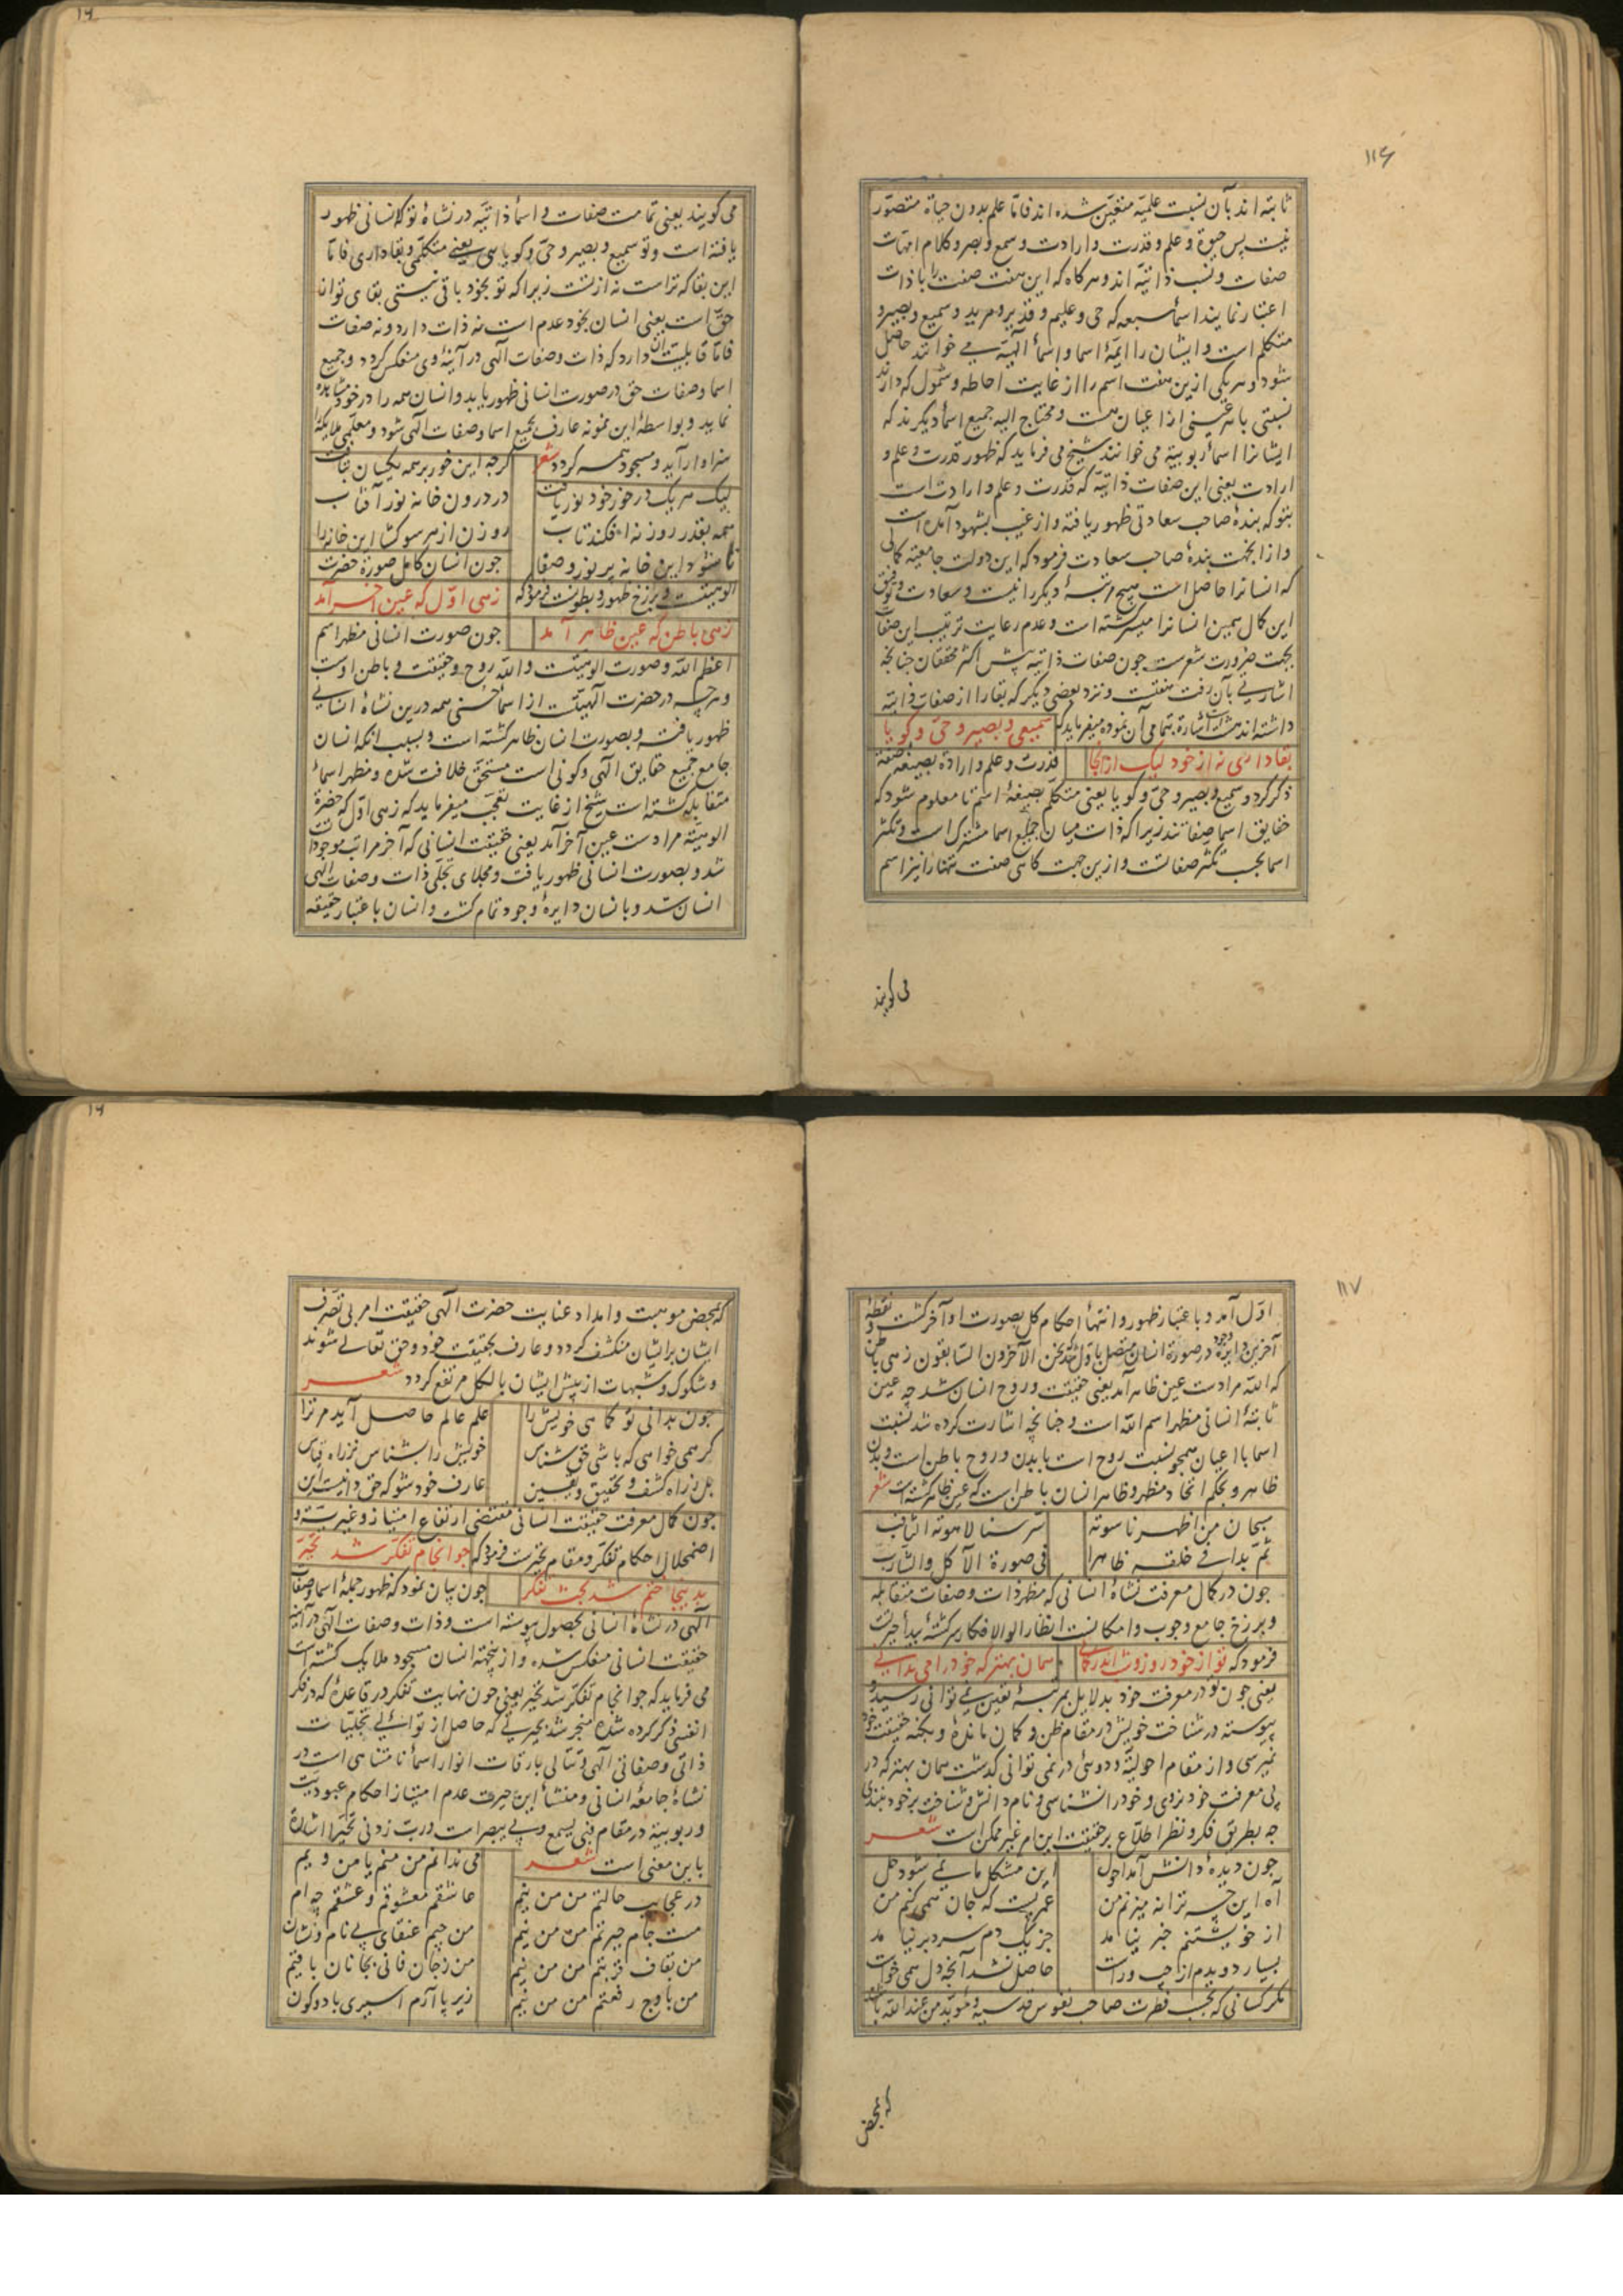 ۱۱۶
ثابته اند بآن نسبت علمیّه متعیّن شده اند فاما علم بدون حیاة متصوّر
نیست پس حیوة و علم و قدرت و ارادت و سمع و بصر و کلام امهات
صفات و نسب ذاتیّه اند و هرگاه که این هفت صفت را با ذات
اعتبار نمایند اسماء سبعه که حی و علیم و قدیر و مرید و سمیع و بصیر و
متکلم است و ایشان را ایمّهٔ اسما و اسماء الهیّه می خوانند حاصل
شود و هر یکی ازین هفت اسم را از غایت احاطه و شمول که دارند
نسبتی با هر عینی از اعیان هست و محتاج الیه جمیع اسماء دیگرند که
ایشانرا اسماء ربوبیّه می خوانند شیخ می فرماید که ظهور قدرت و علم و
ارادت یعنی این صفات ذاتیّه که قدرت و علم و ارادت است
بتو که بندهٔ صاحب سعادتی ظهور یافته و از غیب بشهود آمده است
و از آنجهت بندهٔ صاحب سعادت فرمود که این دولت جامعیّه کمالی
که انسانرا حاصل است هیچ مرتبهٔ دیگر را نیست و سعادت و توفیق
این کمال همین انسانرا میسر گشته است و عدم رعایت ترتیب این صفات
بجهت ضرورت شعرست چون صفات ذاتیه پیش اکثر محققان چنانچه
اشارتی بآن رفت هفتست و نزد بعضی دیگر که بقا را از صفات ذاتیّه
داشته اند هشت است اشارة بتمامی آن نموده میفرماید که سمیعی و بصیر و حیّ و کویا
بقا داری نه از خود لیک از آنجا قدرت و علم و ارادة بصیغهٔ صفة
ذکر کرد و سمیع و بصیر و حیّ و کویا یعنی متکلم بصیغهٔ اسم تا معلوم شود که
حقایق اسما صفاتند زیرا که ذات میان جمیع اسما مشترک است و تکثر
اسما بحسب تکثر صفاتست و ازین جهت گاهی صفت تنها را نیز اسم
می کویند
می کویند یعنی تمامت صفات و اسماء ذاتیّه در نشاهٔ تو که انسانی ظهور
یافته است و تو سمیع و بصیر و حیّ و کویا یی یعنی متکلمی و بقا داری فاما
این بقا که تراست نه از تست زیرا که تو بخود باقی نیستی بقای تو از آن
حقّ است یعنی انسان بخود عدم است نه ذات دارد و نه صفات
فاما قابلیت آن دارد که ذات و صفات الهی در آینهٔ وی منعکس کردد و جمیع
اسما و صفات حق در صورت انسانی ظهور یابد و انسان همه را در خود مشاهده
نماید و بواسطهٔ این نمونه عارف بجمیع اسما و صفات الهی شود و معلّمی ملایکه را
سزاوار آید و مسجود همه کردد شعر کرچه این خور بر همه یکسان بتافت
لیک هر یک در خور خود نور یافت در درون خانه نور آفتاب
همه بقدر روزنه افکند تاب روزن از هر سو کشا این خانه را
تا شود این خانه پر نور و صفا چون انسان کامل صورة حضرت
الوهیتست و برزخ ظهور و بطونست فرمود که زهی اوّل که عین آخر آمد
زهی باطن که عین ظاهر آمد چون صورت انسانی مظهر اسم
اعظم الله و صورت الوهیتست و الله روح و حقیقت و باطن اوست
و هرچه در حضرت الهیّتست از اسماء حسنی همه درین نشاهٔ انسانی
ظهور یافته و بصورت انسان ظاهر کشته است و بسبب آنکه انسان
جامع جمیع حقایق الهی و کونی است مستحقّ خلافت شده و مظهر اسماء
متقابله کشته است شیخ از غایت تعجّب میفرماید که زهی اوّل که حضرة
الوهیّة مرادست عین آخر آمد یعنی حقیقت انسانی که آخر مراتب موجودات
شد و بصورت انسانی ظهور یافت و مجلای تجلّی ذات و صفات الهی
انسان شد و بانسان دایرهٔ وجود تمام کشت و انسان باعتبار حقیقه
۱۱۷
اوّل آمد و باعتبار ظهور و انتهاء احکام کل بصورت او آخر کشت و نقطهٔ
آخرین دایرهٔ وجود در صورة انسان متصل باوّل شد که نحن الآخرون السابقون زهی باطن
که الله مرادست عین ظاهر آمد یعنی حقیقت و روح انسان شد چه عین
ثابتهٔ انسانی مظهر اسم الله است و چنانچه اشارت کرده شد نسبت
اسما با اعیان همچو نسبت روح است با بدن و روح باطن است و بدن
ظاهر و بحکم اتحاد مظهر و ظاهر انسان باطن است که عین ظاهر کشته است شعر
سبحان من اظهر ناسوته سرّ سنا لاهوته الثاقب
ثمّ بدا فی خلقه ظاهرا فی صورة الآکل والشارب
چون در کمال معرفت نشاهٔ انسانی که مظهر ذات و صفات متقابله
و برزخ جامع وجوب و امکانست انظار اولو الافکار سرکشتهٔ بیداء حیرتست
فرمود که تو از خود روز و شب اندر کمانی همان بهتر که خود را می ندانی
یعنی چون تو در معرفت خود بدلایل بمرتبهٔ یقین نمی توانی رسید و
پیوسته در شناخت خویش در مقام ظن و کمان مانده و بکنه حقیقت خود
نمیرسی و از مقام احولیّة و دوئی در نمی توانی کذشت همان بهتر که در
پی معرفت خود نروی و خود را نشناسی و نام دانش و شناخت بر خود نبندی
چه بطریق فکر و نظر اطلاع بر حقیقت این امر غیر ممکن است شعر
چون دیدهٔ دانش آمد احول این مشکل ما نمی شود حل
آه این چه ترانه میزنم من عمریست که جان همی کنم من
از خویشتنم خبر نیامد جز یک دم سرد بر نیامد
بسیار دویدم از چپ و راست حاصل نشد آنچه دل همی خواست
مکر کسانی که بحسب فطرت صاحب نفوس قدسیه و مؤید من عند الله باشند
که بمحض
که بمحض موهبت و امداد عنایت حضرت الهی حقیقت امر بی تصرف
ایشان بر ایشان منکشف کردد و عارف بحقیقت خود و حق تعالی شوند
و شکوک و شبهات از پیش ایشان بالکل مرتفع کردد شعر
چون بدانی تو کماهی خویش را علم عالم حاصل آید مر ترا
کر همی خواهی که باشی حق شناس خویش را بشناس نز راه قیاس
بل ز راه کشف و تحقیق و یقین عارف خود شو که حق دانیست این
چون کمال معرفت حقیقت انسانی مقتضی ارتفاع امتیاز و غیریّت و
اضمحلال احکام تفکر و مقام تحیرست فرمود که چو انجام تفکر شد تحیّر
بدینجا ختم شد بحث تفکر چون بیان نمود که ظهور جملهٔ اسما و صفات
الهی در نشاهٔ انسانی بحصول پیوسته است و ذات و صفات الهی در آینهٔ
حقیقت انسانی منعکس شده و ازینجهة انسان مسجود ملایک کشته است
می فرماید که چو انجام تفکر شد تحیّر یعنی چون نهایت تفکر در قاعدهٔ که در فکر
انفسی ذکر کرده شده منجر شد بحیرتی که حاصل از توالی تجلیّات
ذاتی و صفاتی الهی و تتالی بارقات انوار اسماء نامتناهی است در
نشاهٔ جامعهٔ انسانی و منشاء این حیرت عدم امتیاز احکام عبودیت
و ربوبیّة در مقام فبی یسمع و بی یبصر است و ربّ زدنی تحیّرا اشارة
باین معنی است شعر می ندانم من منم یا من ویم
در عجایب حالتم من من نیم عاشقم معشوقم و عشقم چه ام
مست جام حیرتم من من نیم من چیم عنقای بی نام و نشان
من بقاف قربتم من من نیم من ز جان فانی بجانان باقیم
من باوج رفعتم من من نیم زیر پا آرم اسیری با دو کون